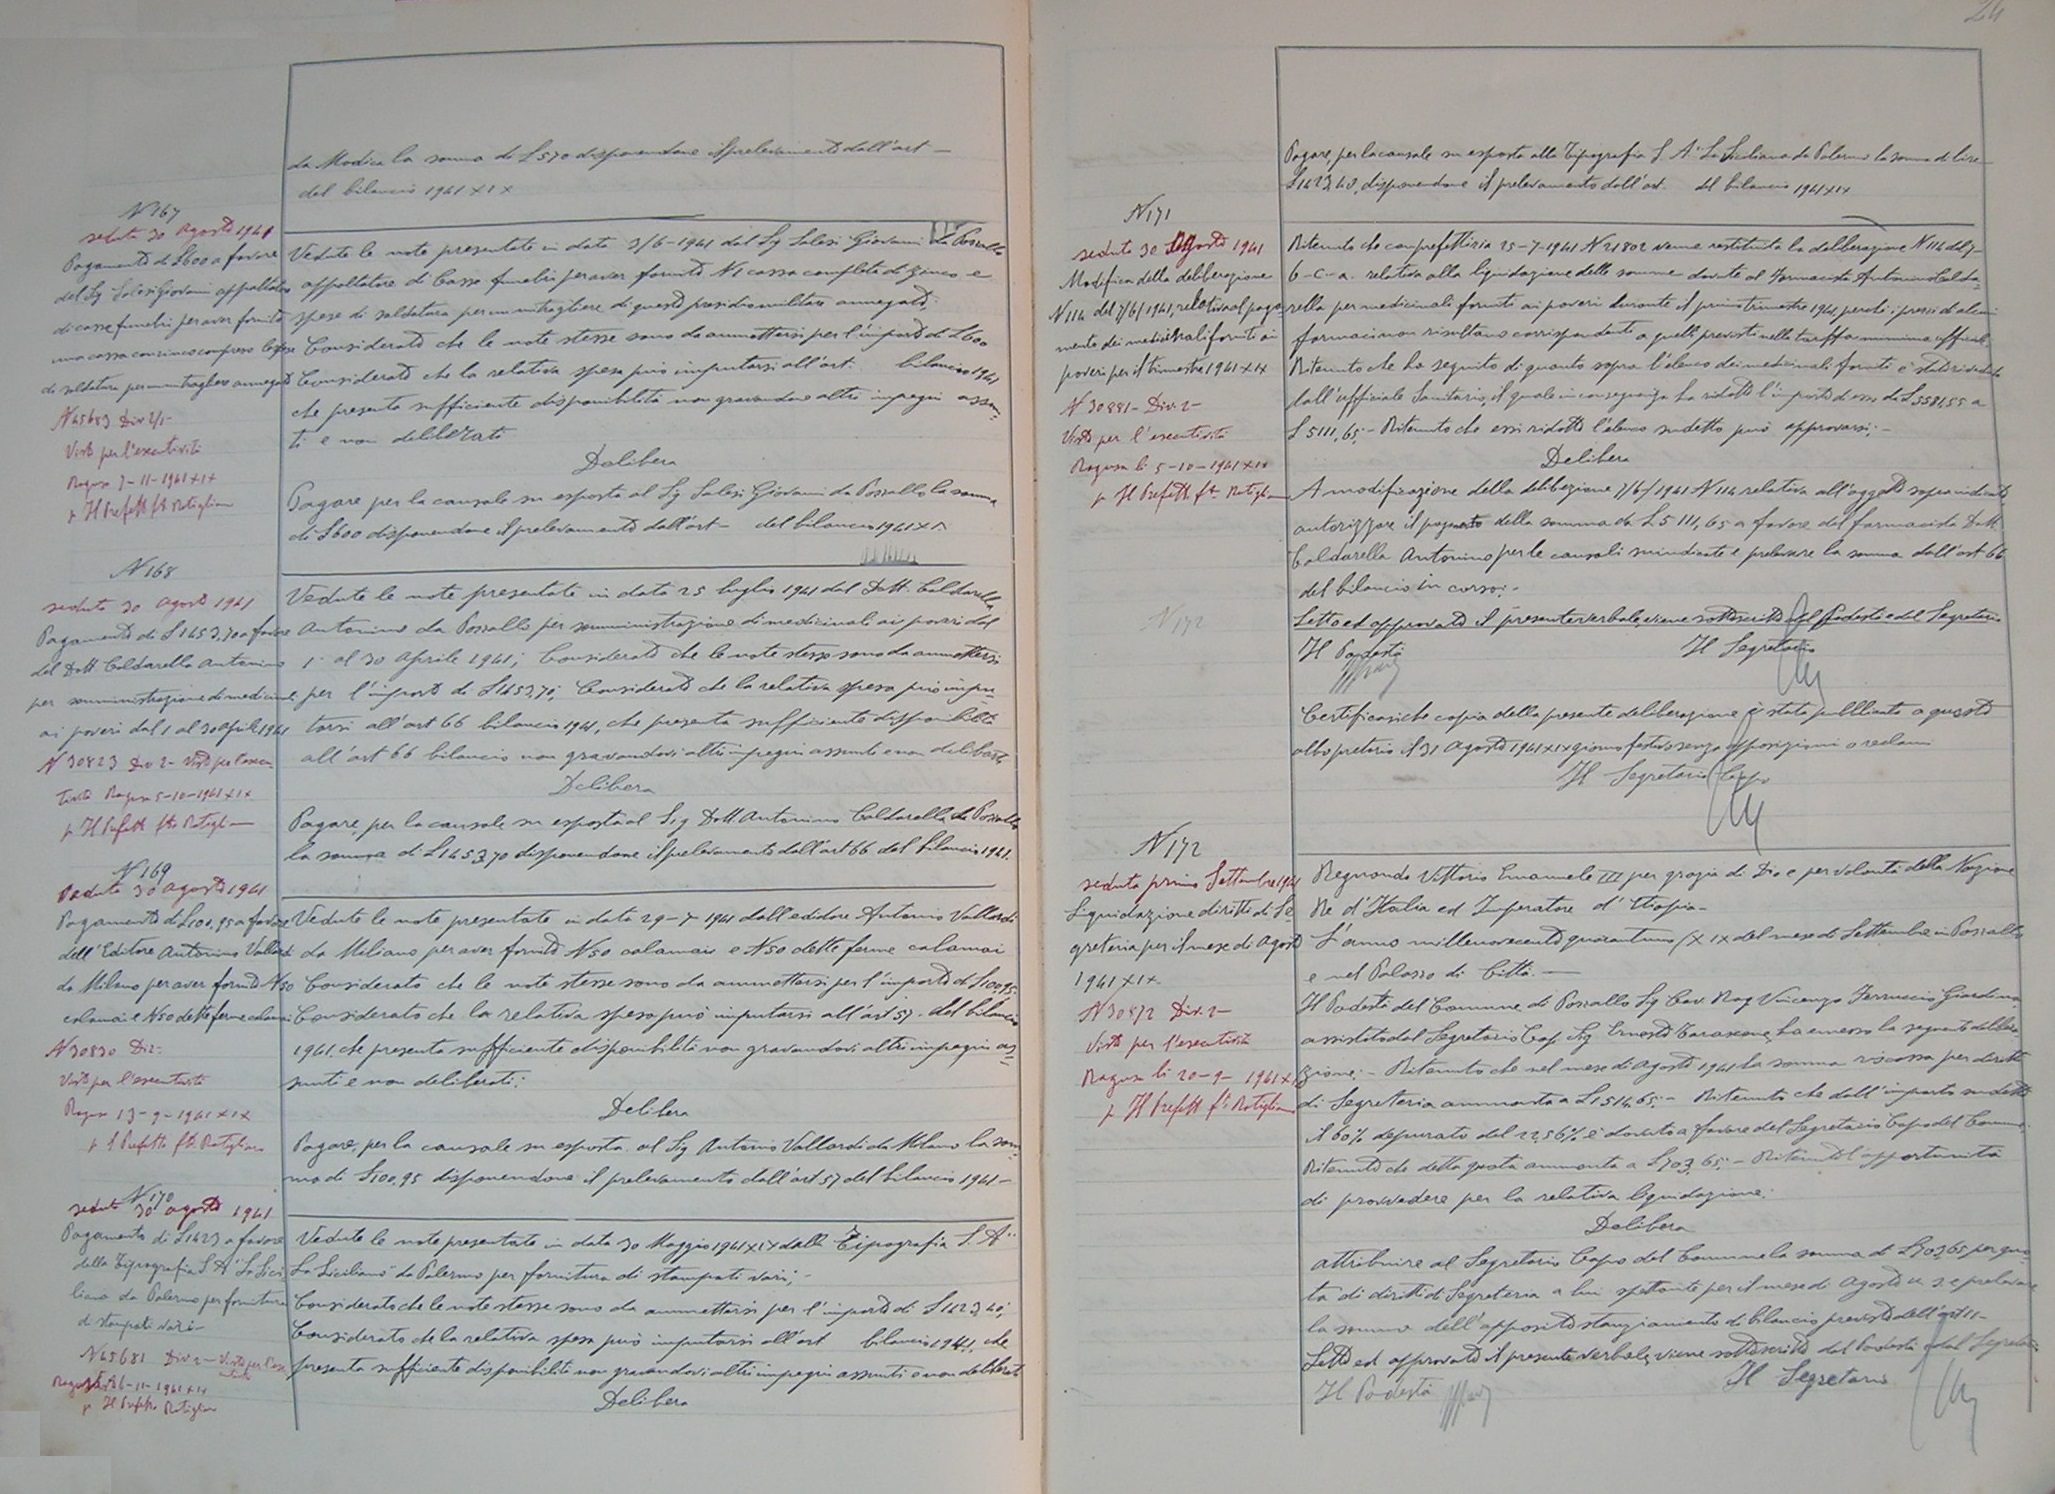 da Modica la somma di £ 570 disponendone il prelevamento dall'art —
del bilancio 1941 XIX
N 167
seduta 30 Agosto 1941
Pagamento di £ 600 a favore
del Sig Salesi Giovanni appaltatore
di casse funebri per aver fornito
una cassa con zinco compreso le spese
di saldatura per mitragliere annegato
N 45683 Div 2/1-
Visto per l'esecutività
Ragusa 7-11-1941 XIX
p Il Prefetto fto Rotigliano
Vedute le note presentate in data 3/6-1941 dal Sig Salesi Giovanni da Pozzallo
appaltatore di Casse funebri per aver fornito N 1 cassa completa di zinco e
spese di saldatura per un mitragliere di questo presidio militare annegato;
Considerato che le note stesse sono da ammettersi per l'importo di £ 600
Considerato che la relativa spesa può imputarsi all'art. bilancio 1941
che presenta sufficiente disponibilità non gravandone altri impegni assun-
ti e non deliberati
Delibera
Pagare per la causale su esposta al Sig Salesi Giovanni da Pozzallo la somma
di £ 600 disponendone il prelevamento dall'art — del bilancio 1941 XIX
N 168
seduta 30 agosto 1941
Pagamento di £ 1453,70 a favore
del Dott Caldarella Antonino
per somministrazione di medicinali
ai poveri dal 1 al 30 aprile 1941
N 30823 Div 2- Visto per l'esecu-
tività Ragusa 5-10-1941 XIX
p Il Prefetto fto Rotigliano
Vedute le note presentate in data 25 luglio 1941 dal Dott. Caldarella
Antonino da Pozzallo per somministrazione di medicinali ai poveri dal
1° al 30 Aprile 1941; Considerato che le note stesse sono da ammettersi
per l'importo di £ 1453,70; Considerato che la relativa spesa può impu-
tarsi all'art 66 bilancio 1941, che presenta sufficiente disponibilità
all'art 66 bilancio non gravandovi altri impegni assunti e non deliberati
Delibera
Pagare, per la causale su esposta al Sig Dott. Antonino Caldarella da Pozzallo
la somma di £ 1453,70 disponendone il prelevamento dall'art 66 del bilancio 1941.
N 169
Seduta 30 agosto 1941
Pagamento di £ 100,95 a favore
dell'Editore Antonino Vallardi
da Milano per aver fornito N 50
calamai e N 50 dette ferme calamai
N 30830 Div:
Visto per l'esecutività
Ragusa 13-9-1941 XIX
p Il Prefetto fto Rotigliano
Vedute le note presentate in data 29-7-1941 dall'editore Antonio Vallardi
da Milano per aver fornito N 50 calamai e N 50 dette ferme calamai
Considerato che le note stesse sono da ammettersi per l'importo di £ 100,95.
Considerato che la relativa spesa può imputarsi all'art 57. del bilancio
1941, che presenta sufficiente disponibilità non gravandovi altri impegni as-
sunti e non deliberati:
Delibera
Pagare, per la causale su esposta al Sig Antonio Vallardi da Milano la som-
ma di £ 100,95 disponendone il prelevamento dall'art 57 del bilancio 1941-
N 170
seduta 30 agosto 1941
Pagamento di £ 1423 a favore
della Tipografia S. A "La Sici
liana da Palermo per fornitura
di stampati vari-
N 45681 Div 2- Visto per l'esecu
tività
Ragusa 26-11-1941 XIX
p Il Prefetto Rotigliano
Vedute le note presentate in data 30 Maggio 1941 XIX dalla Tipografia S. A"
La Siciliana" da Palermo per fornitura di stampati vari;-
Considerato che le note stesse sono da ammettersi per l'importo di £ 1423,40;
Considerato che la relativa spesa può imputarsi all'art bilancio 1941, che
presenta sufficiente disponibilità non gravandovi altri impegni assunti e non deliberati
Delibera
24
Pagare, per la causale su esposta alla Tipografia S. A" La Siciliana da Palermo la somma di lire
£ 1423,40, disponendone il prelevamento dall'art. del bilancio 1941 XIX
N 171
seduta 30 Agosto 1941
Modifica della deliberazione
N 114 del 7/6/1941, relativa al paga-
mento dei medicinali forniti ai
poveri per il trimestre 1941 XIX
N 30881- Div. 2-
Visto per l'esecutività
Ragusa li 5-10-1941 XIX
p Il Prefetto fto Rotigliano
Ritenuto che con prefettizia 25-7-1941 N 21802 venne restituita la deliberazione N 114 del 7-
6-c-a- relativa alla liquidazione delle somme dovute al Farmacista Antonino Calda-
rella per medicinali forniti ai poveri durante il primo trimestre 1941, perché i prezzi di alcuni
farmaci non risultano corrispondenti a quelli previsti nella tariffa minima ufficiale
Ritenuto che ha seguito di quanto sopra l'elenco dei medicinali forniti è stato riveduto
dall'ufficiale Sanitario, il quale in conseguenza ha ridotto l'importo di esso da £ 5581,55 a
£ 5111,65;- Ritenuto che essi ridotto l'elenco sudetto può approvarsi;-
Delibera
A modificazione della deliberazione 7/6/1941 N 114 relativa all'oggetto sopra indicato
autorizzare il pagamento della somma da £ 5111,65 a favore del farmacista Dott.
Caldarella Antonino per le causali suindicate e prelevare la somma dall'art 66
del bilancio in corso;-
N 172
Letto ed approvato il presente verbale, viene sottoscritto dal Podestà e dal Segretario
Il Podestà Il Segretario
Certificasi che copia della presente deliberazione è stata pubblicata a questo
albo pretorio il 31 Agosto 1941 XIX giorno festivo senza opposizioni o reclami
Il Segretario Capo
N 172
seduta primo Settembre 1941
Liquidazione diritti di Se-
greteria per il mese di Agosto
1941 XIX
N 30872 Div. 2-
Visto per l'esecutività
Ragusa li 20-9-1941 XIX
p Il Prefetto fto Rotigliano
Regnando Vittorio Emanuele III per grazia di Dio e per volontà della Nazione
Re d'Italia ed Imperatore d'Etiopia-
L'anno millenovecento quarantuno/XIX del mese di Settembre in Pozzallo
e nel Palazzo di Città.—
Il Podestà del Comune di Pozzallo Sig Cav. Rag Vincenzo Ferruccio Giardina
assistito dal Segretario Capo Sig Ernesto Tarascone, ha emesso la seguente delibera-
zione:- Ritenuto che nel mese di agosto 1941 la somma riscossa per diritti
di Segreteria ammonta a £ 1514,65;- Ritenuto che dall'importo sudetto
il 60% depurato del 22,56% è dovuto a favore del Segretario Capo del Comune.
Ritenuto che detta quota ammonta a £ 703,65;- Ritenuto l'opportunità
di provvedere per la relativa liquidazione;
Delibera
attribuire al Segretario Capo del Comune la somma di £ 703,65 per quo-
ta di diritti di Segreteria a lui spettante per il mese di Agosto u. s. e prelevare
la somma dell'apposito stanziamento di bilancio previsto dall'art 11-
Letto ed approvato il presente verbale, viene sottoscritto dal Podestà e dal Segretario
Il Podestà Il Segretario